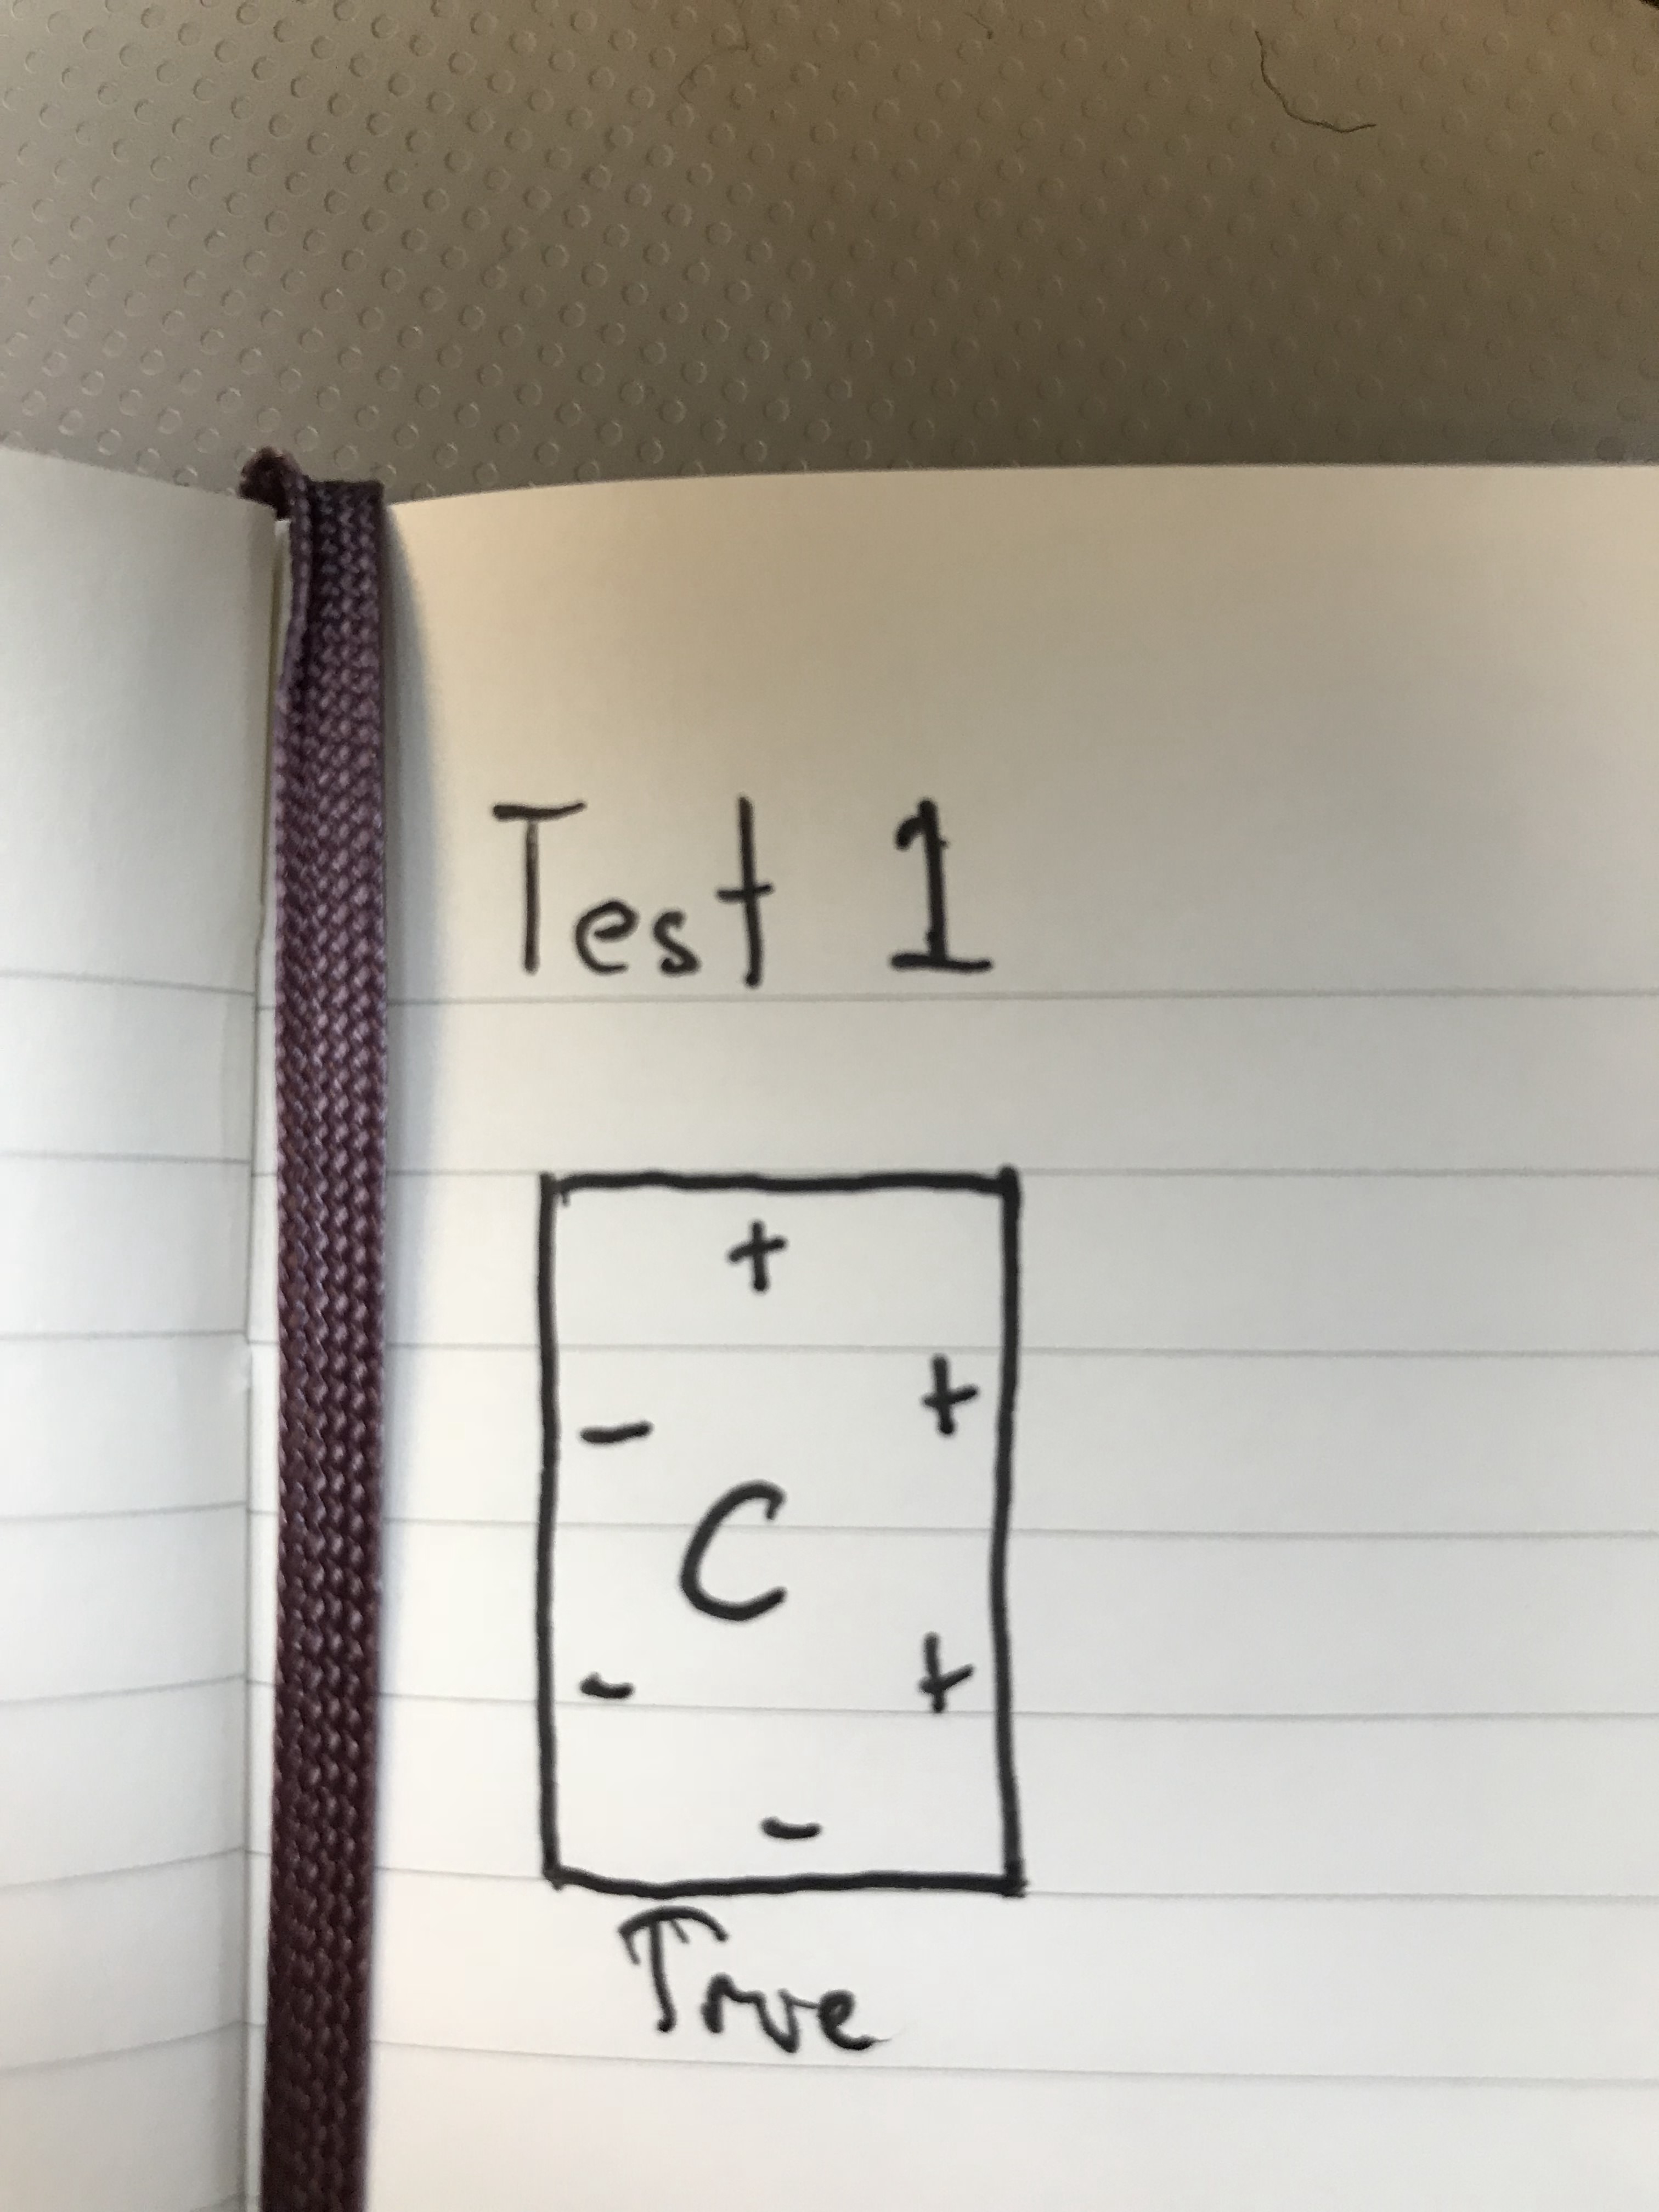 Test 1
+
- +
C
- +
-
True